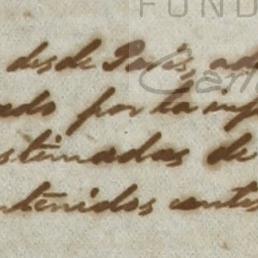 FUND
desde Paris, ad
ado por la imp
stimadas de
ntenidos entes